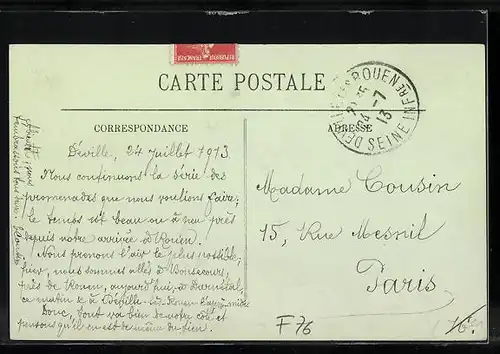 REPUBLIQUE FRANÇAISE
CARTE POSTALE
CORRESPONDANCE
ADRESSE
DEVILLE LES ROUEN
24 -7
13
SEINE INFRE
Déville, 24 Juillet 1913
Nous continuons la série des
promenades que nous voulions faire;
le temps est beau ou à peu près
depuis notre arrivée à Rouen.
Nous prenons l'air le plus possible;
hier, nous sommes allés à Bonsecours,
près de Rouen, aujourd'hui, à Darnétal,
ce matin & à Déville-lès-Rouen
Donc, tout va bien de notre côté et
pensons qu'il en est de même du tien.
Madame Cousin
15, Rue Mesnil
Paris
F 76